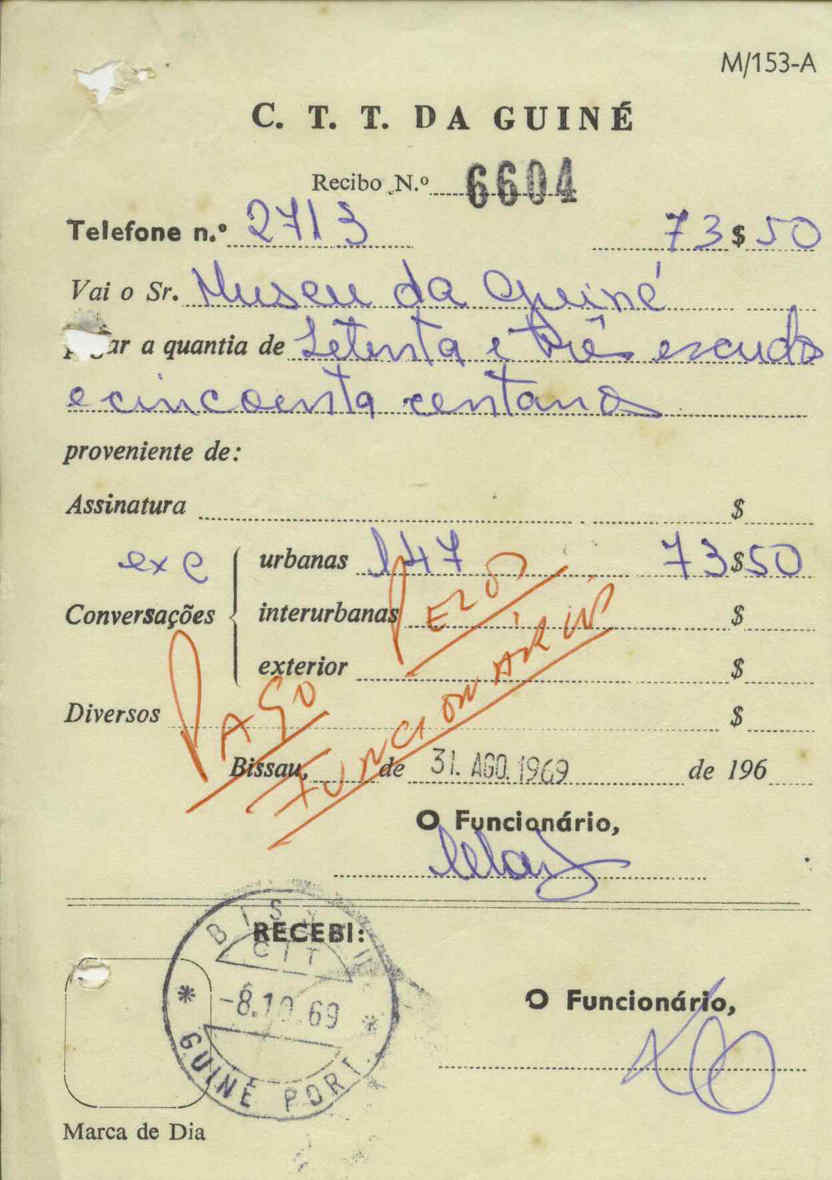 M/153-A
C. T. T. DA GUINÉ
Recibo N.º 6604
Telefone n.º 2713 73$50
Vai o Sr. Museu da Guiné
pagar a quantia de Setenta e três escudos
e cincoenta centavos
proveniente de:
Assinatura $
exc urbanas 147 73$50
Conversações interurbanas $
exterior $
Diversos $
PAGO PELOS
FUNCIONÁRIOS
Bissau, de 31. AGO. 1969 de 196
O Funcionário,
RECEBI:
BISSAU
CTT
-8.10.69
GUINÉ PORT.
O Funcionário,
Marca de Dia